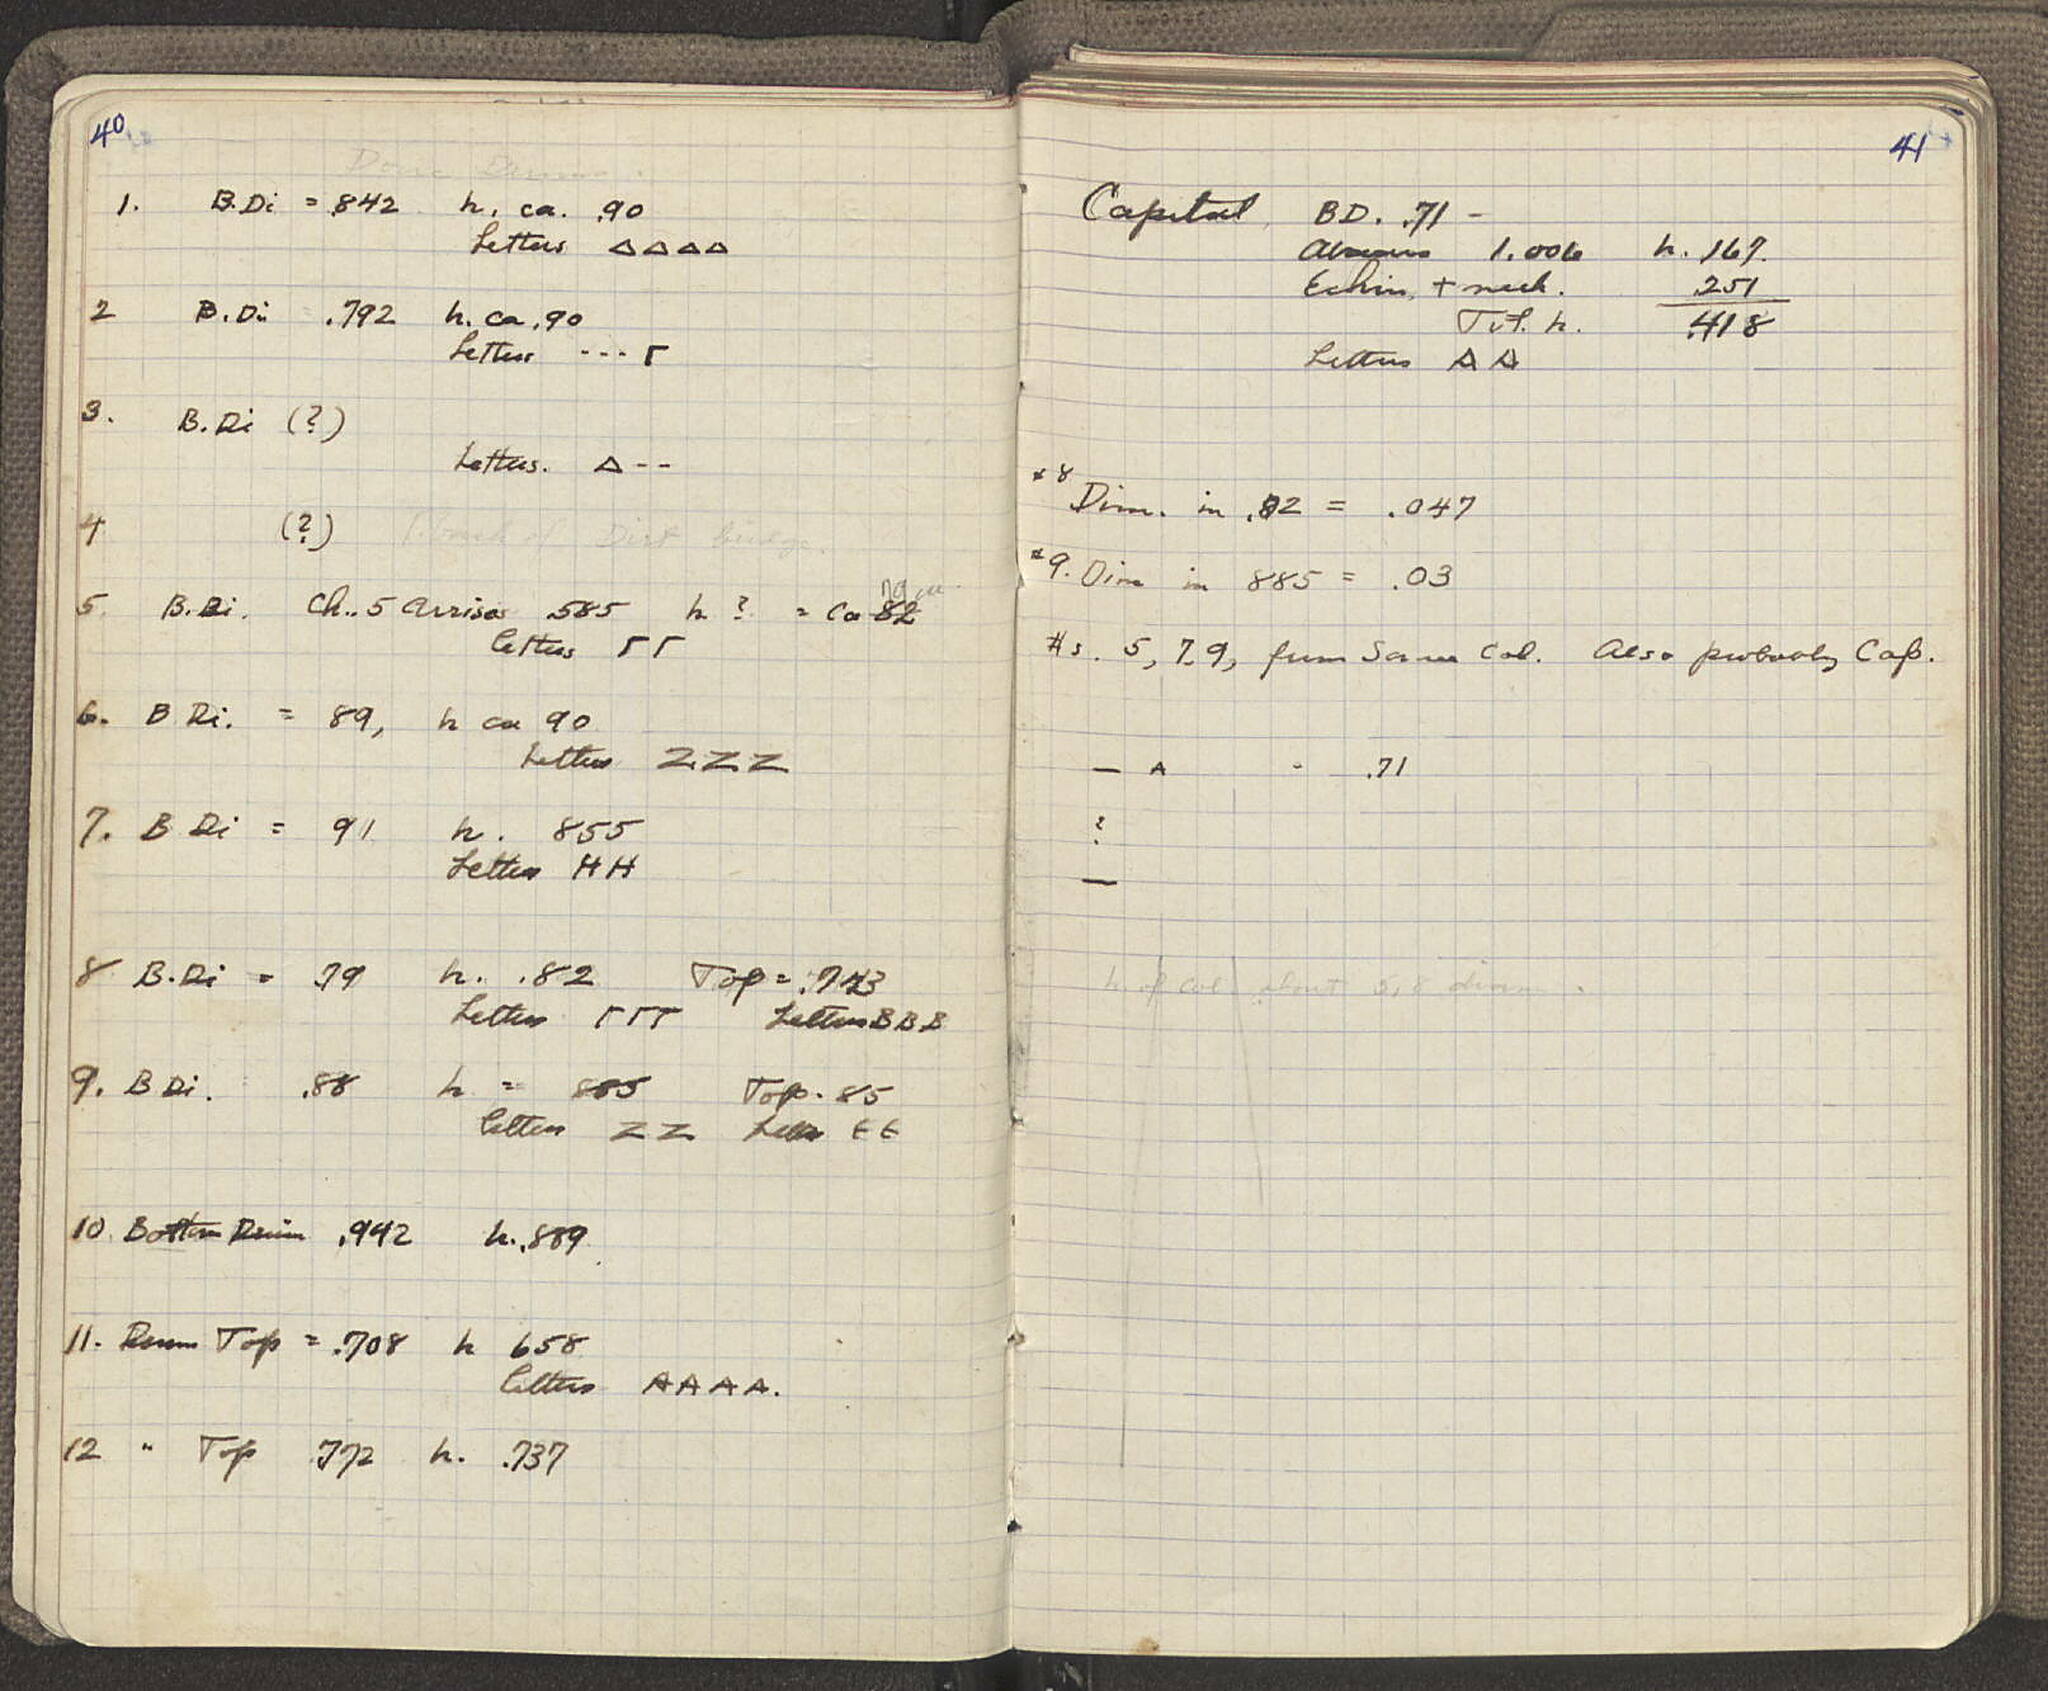 40
Doric Drums.
1. B.Di = .842 h. ca. .90
Letters Δ Δ Δ Δ
2 B.Di = .792 h. ca .90
Letters --- Γ
3. B.Di (?)
Letters. Δ--
4 (?) Dist
5. B.Di. Ch. . 5 Arrises .585 h ? = ca 82
letters Γ Γ
6. B Di. = 89, h ca 90
Letters Z Z Z
7. B Di = 91 h. 855
Letters H H
8 B.Di = .79 h. .82 Top = .743
Letters Γ Γ Γ Letters B B B
9. B Di. .88 h = 885 Top . 85
letters Z Z Letters E E
10. Bottom Drum .942 h. .889
11. Drum Top = .708 h 658
letters A A A A.
12 " Top .772 h. .737
41
Capital, BD. .71 -
Abacus 1.006 h. .167.
Echin. + neck. .251
Tot. h. .418
Letters A A
#8 Dim. in .82 = .047
#9. Dim in 885 = .03
#s. 5, 7, 9, from Same Col. Also probably Cap.
— A - .71
?
—
h. of col. about 5, 8 diam.